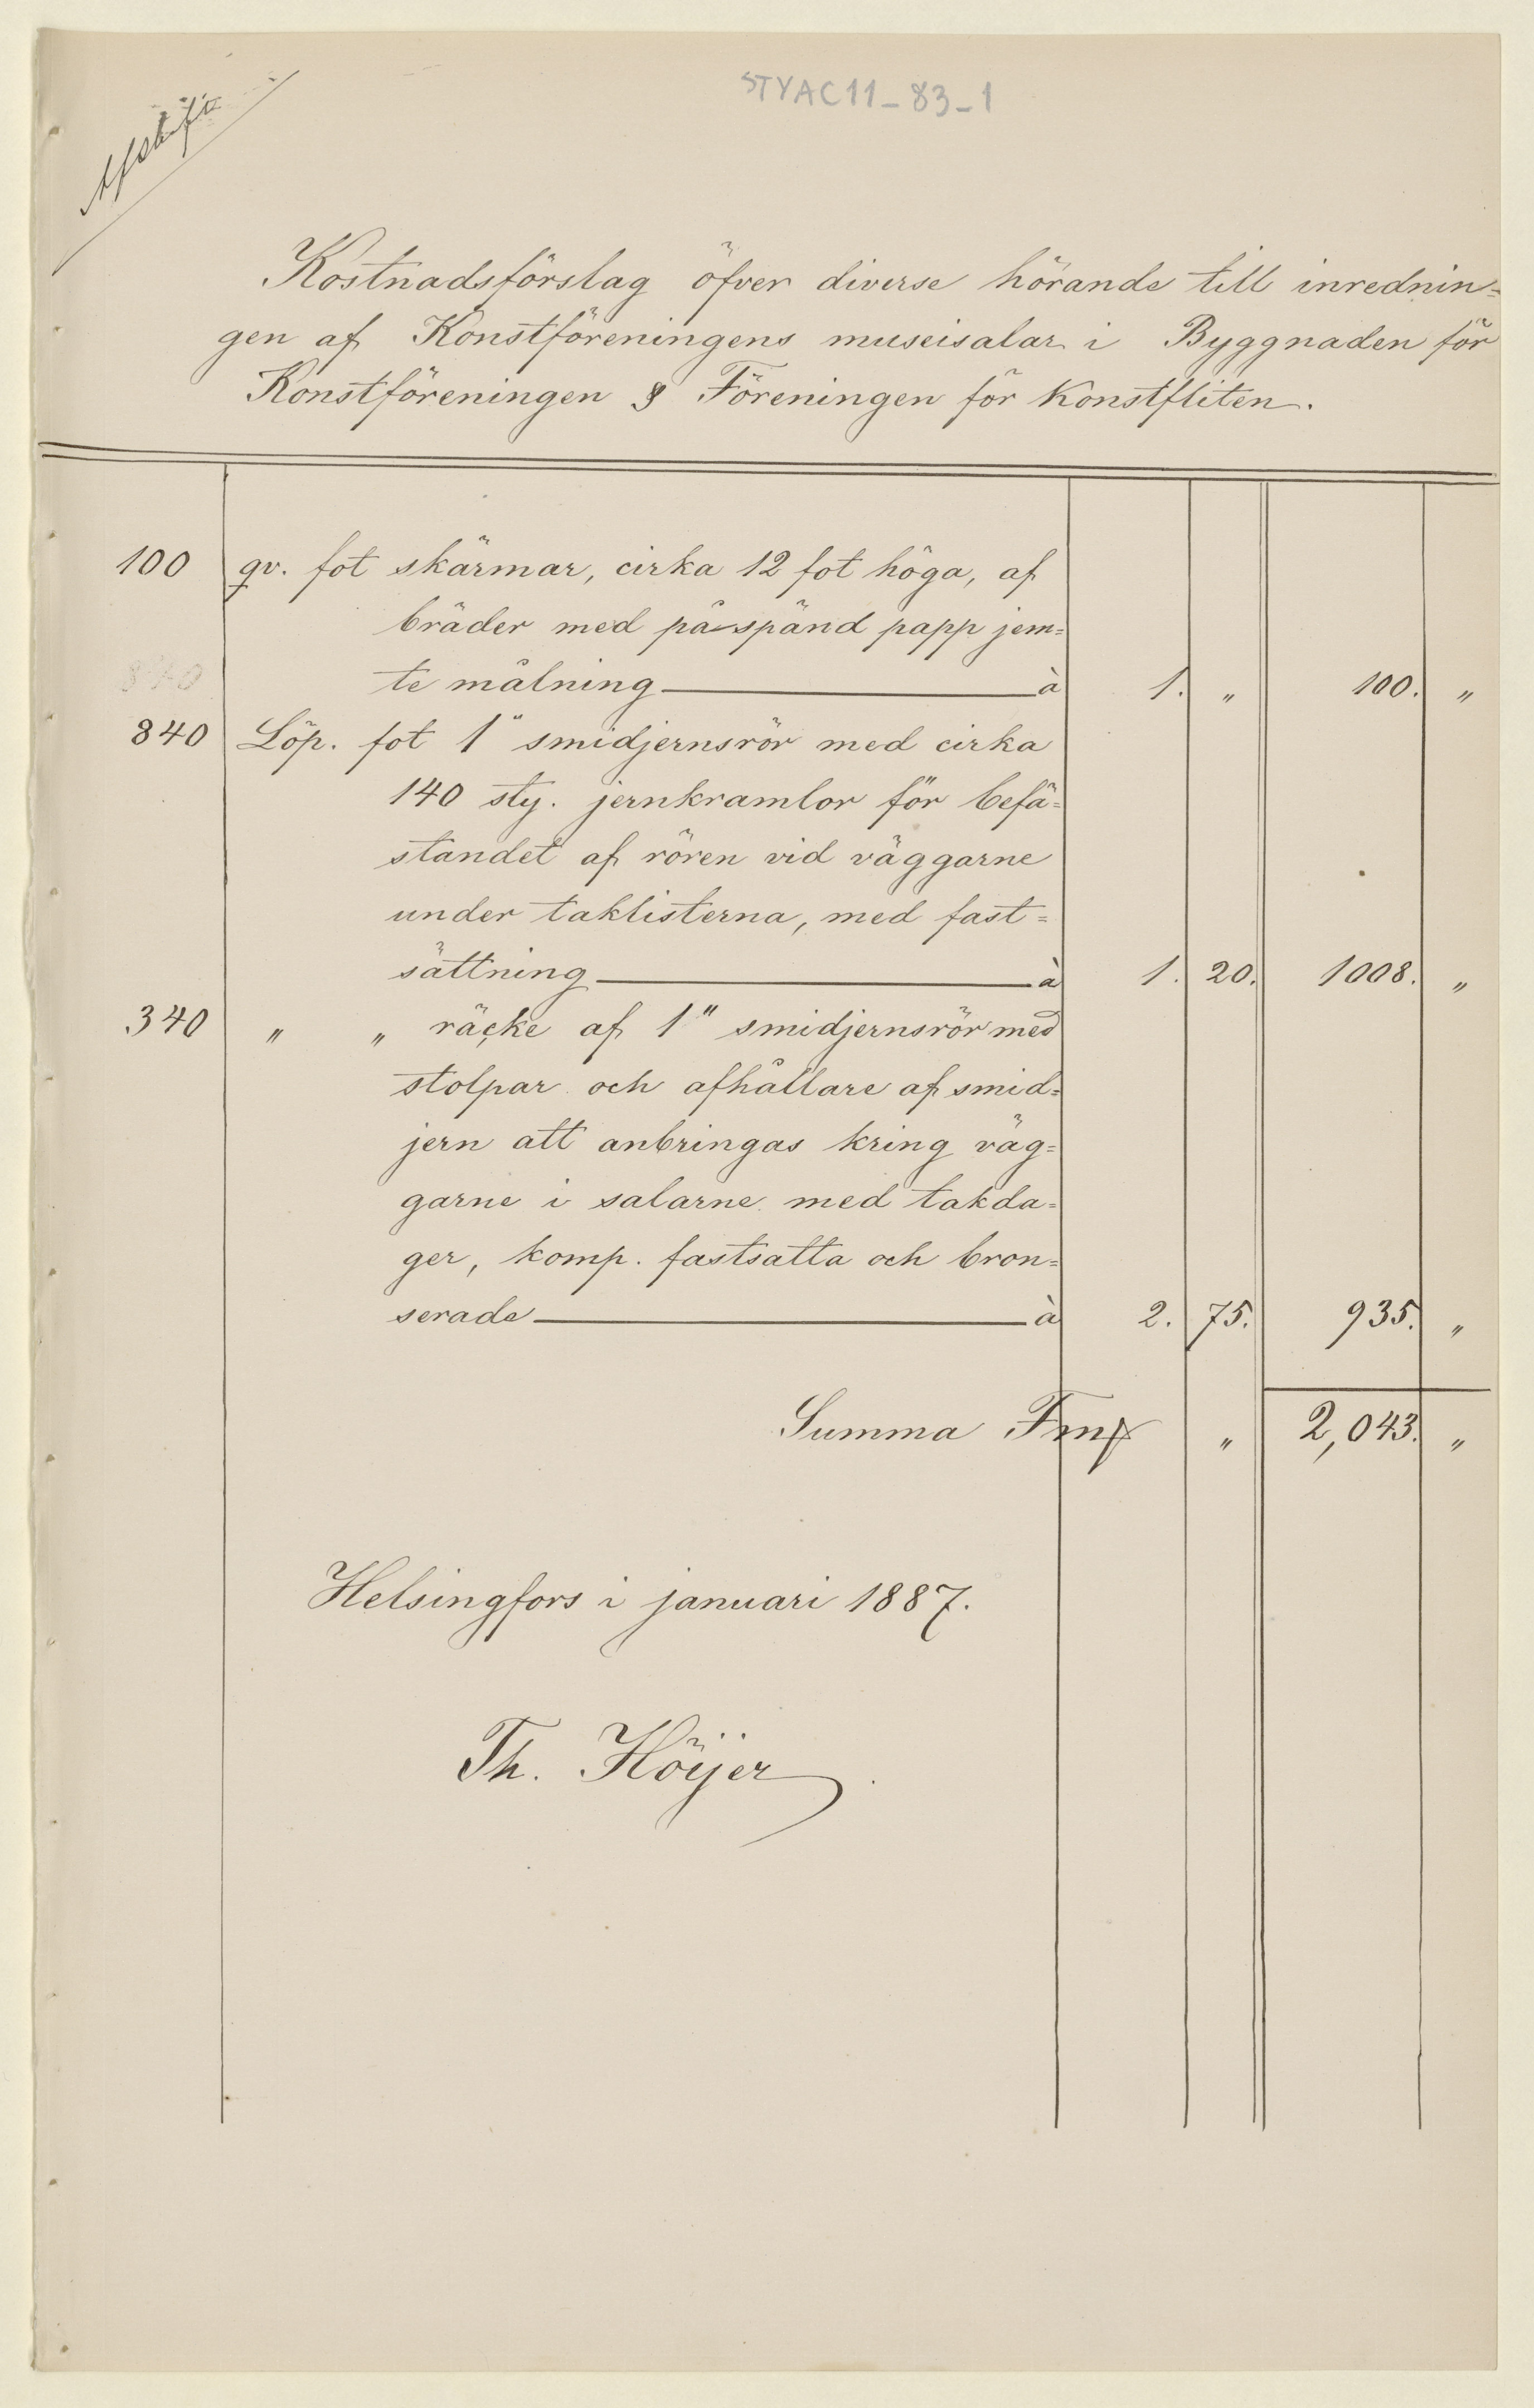 STYAC11_83_1
Afskrift
Kostnadsförslag öfver diverse hörande till inrednin=
gen af Konstföreningens museisalar i Byggnaden för
Konstföreningen & Föreningen för Konstfliten.
100 qv. fot skärmar, cirka 12 fot höga, af
bräder med på spänd papp jem=
te målning à 1. " 100. "
840
840 Löp. fot 1" smidjernsrör med cirka
140 sty. jernkramlor för befä=
standet af rören vid väggarne
under taklisterna, med fast=
sättning à 1. 20. 1008. "
340 " " räcke af 1" smidjernsrör med
stolpar och afhållare af smid=
jern att anbringas kring väg=
garne i salarne med takda=
ger, komp. fastsatta och bron=
serade à 2. 75. 935. "
Summa Fmk " 2,043. "
Helsingfors i januari 1887.
Th. Höijer